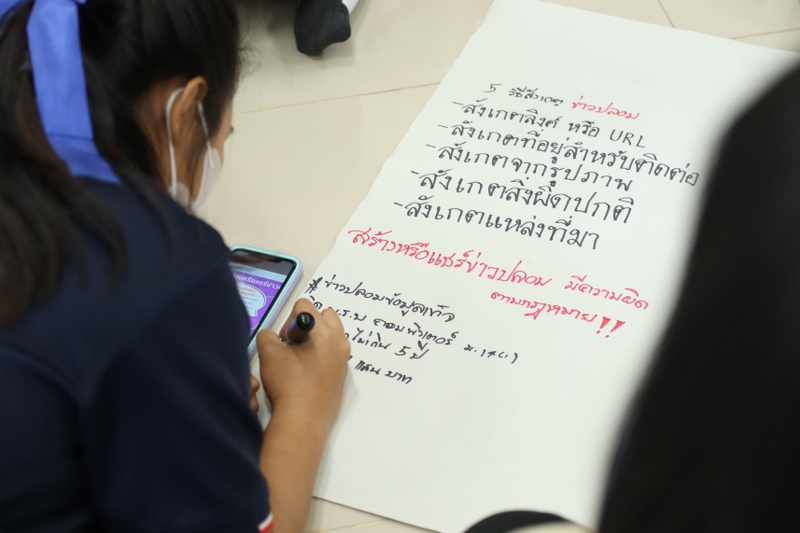 5 วิธีสังเกต ข่าวปลอม
-สังเกตลิงค์ หรือ URL
-สังเกตที่อยู่สำหรับติดต่อ
-สังเกตจากรูปภาพ
-สังเกตสิ่งผิดปกติ
-สังเกตแหล่งที่มา
สร้างหรือแชร์ข่าวปลอม มีความผิด
ตามกฎหมาย!!
*ข่าวปลอมข้อมูลเท็จ
พ.ร.บ คอมพิวเตอร์ ม.14(1)
ไม่เกิน 5 ปี
แสน บาท